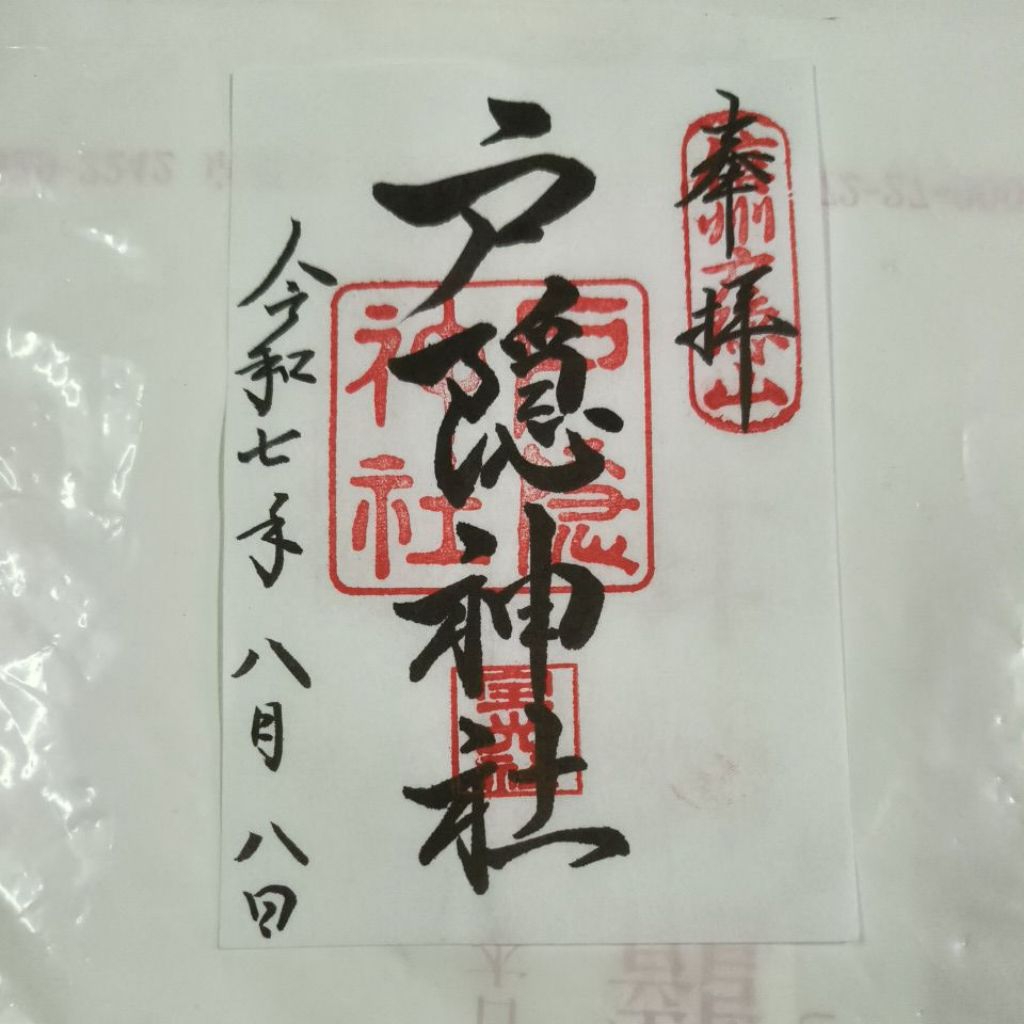 奉拝
信州戸隠山
戸隠神社
戸隠
神社
令和七年八月八日